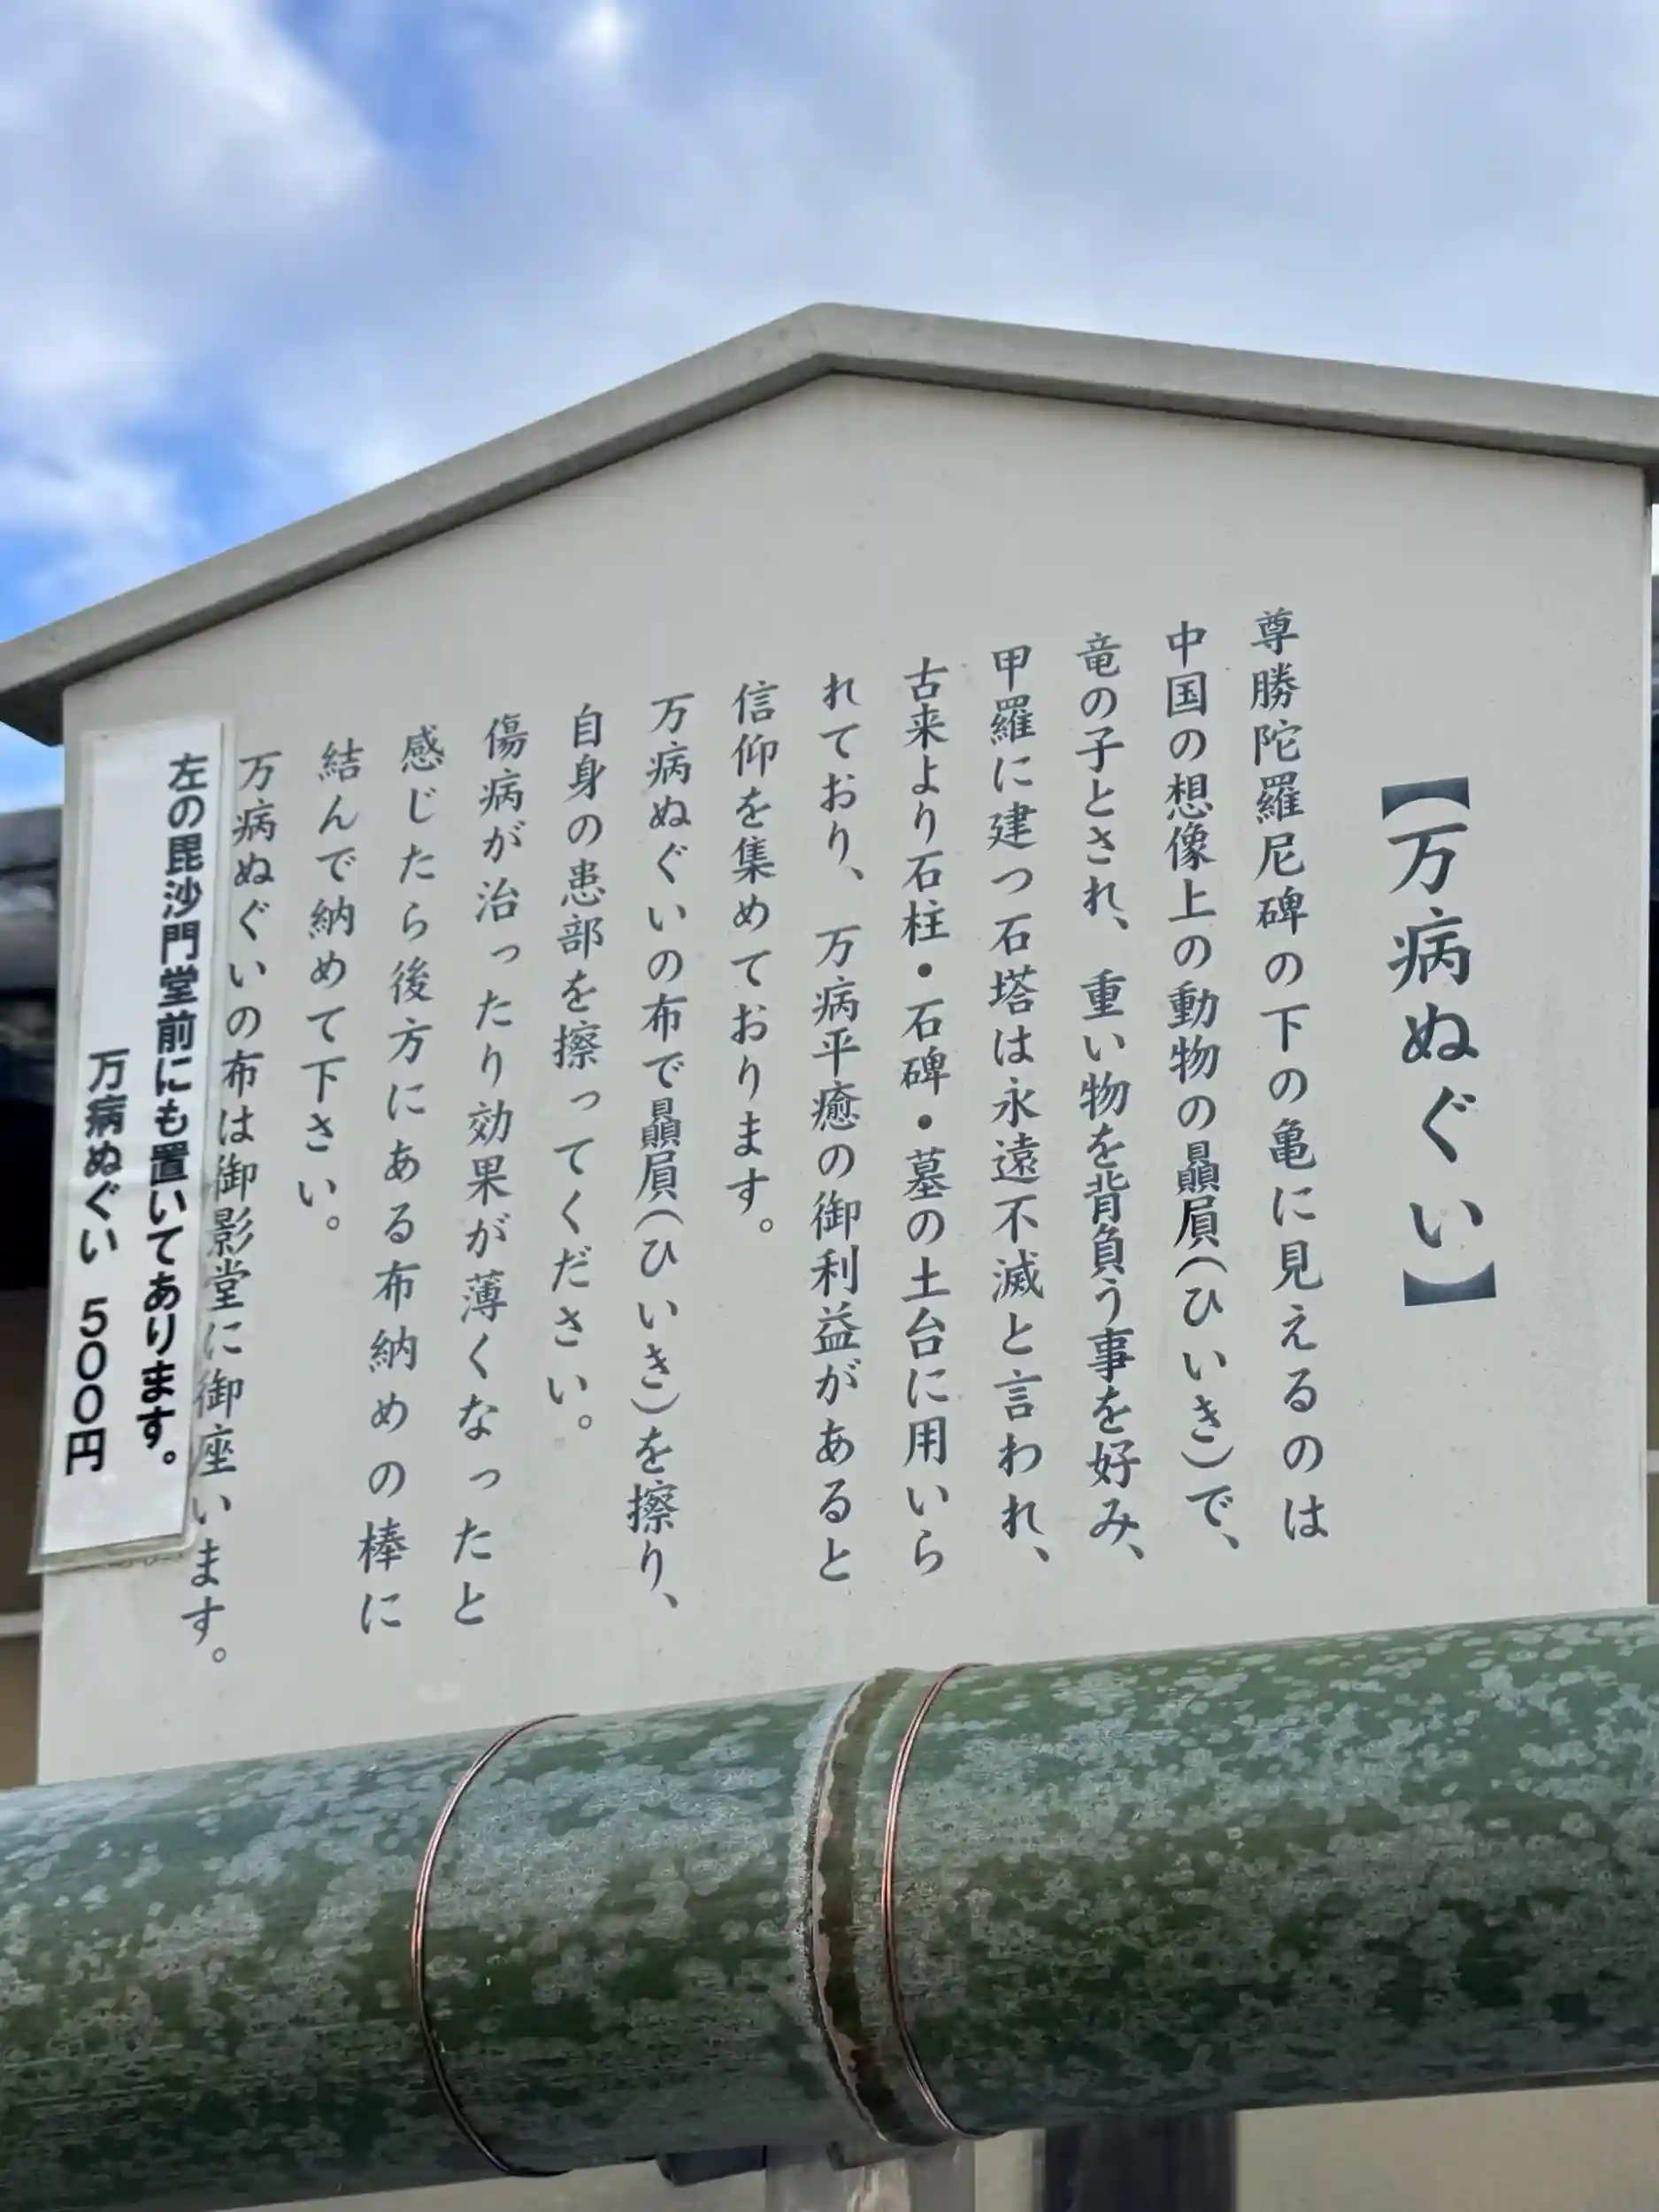 【万病ぬぐい】
尊勝陀羅尼碑の下の亀に見えるのは
中国の想像上の動物の贔屓(ひいき)で、
竜の子とされ、重い物を背負う事を好み、
甲羅に建つ石塔は永遠不滅と言われ、
古来より石柱・石碑・墓の土台に用いら
れており、万病平癒の御利益があると
信仰を集めております。
万病ぬぐいの布で贔屓(ひいき)を擦り、
自身の患部を擦ってください。
傷病が治ったり効果が薄くなったと
感じたら後方にある布納めの棒に
結んで納めて下さい。
万病ぬぐいの布は御影堂に御座います。
左の毘沙門堂前にも置いてあります。
万病ぬぐい 500円